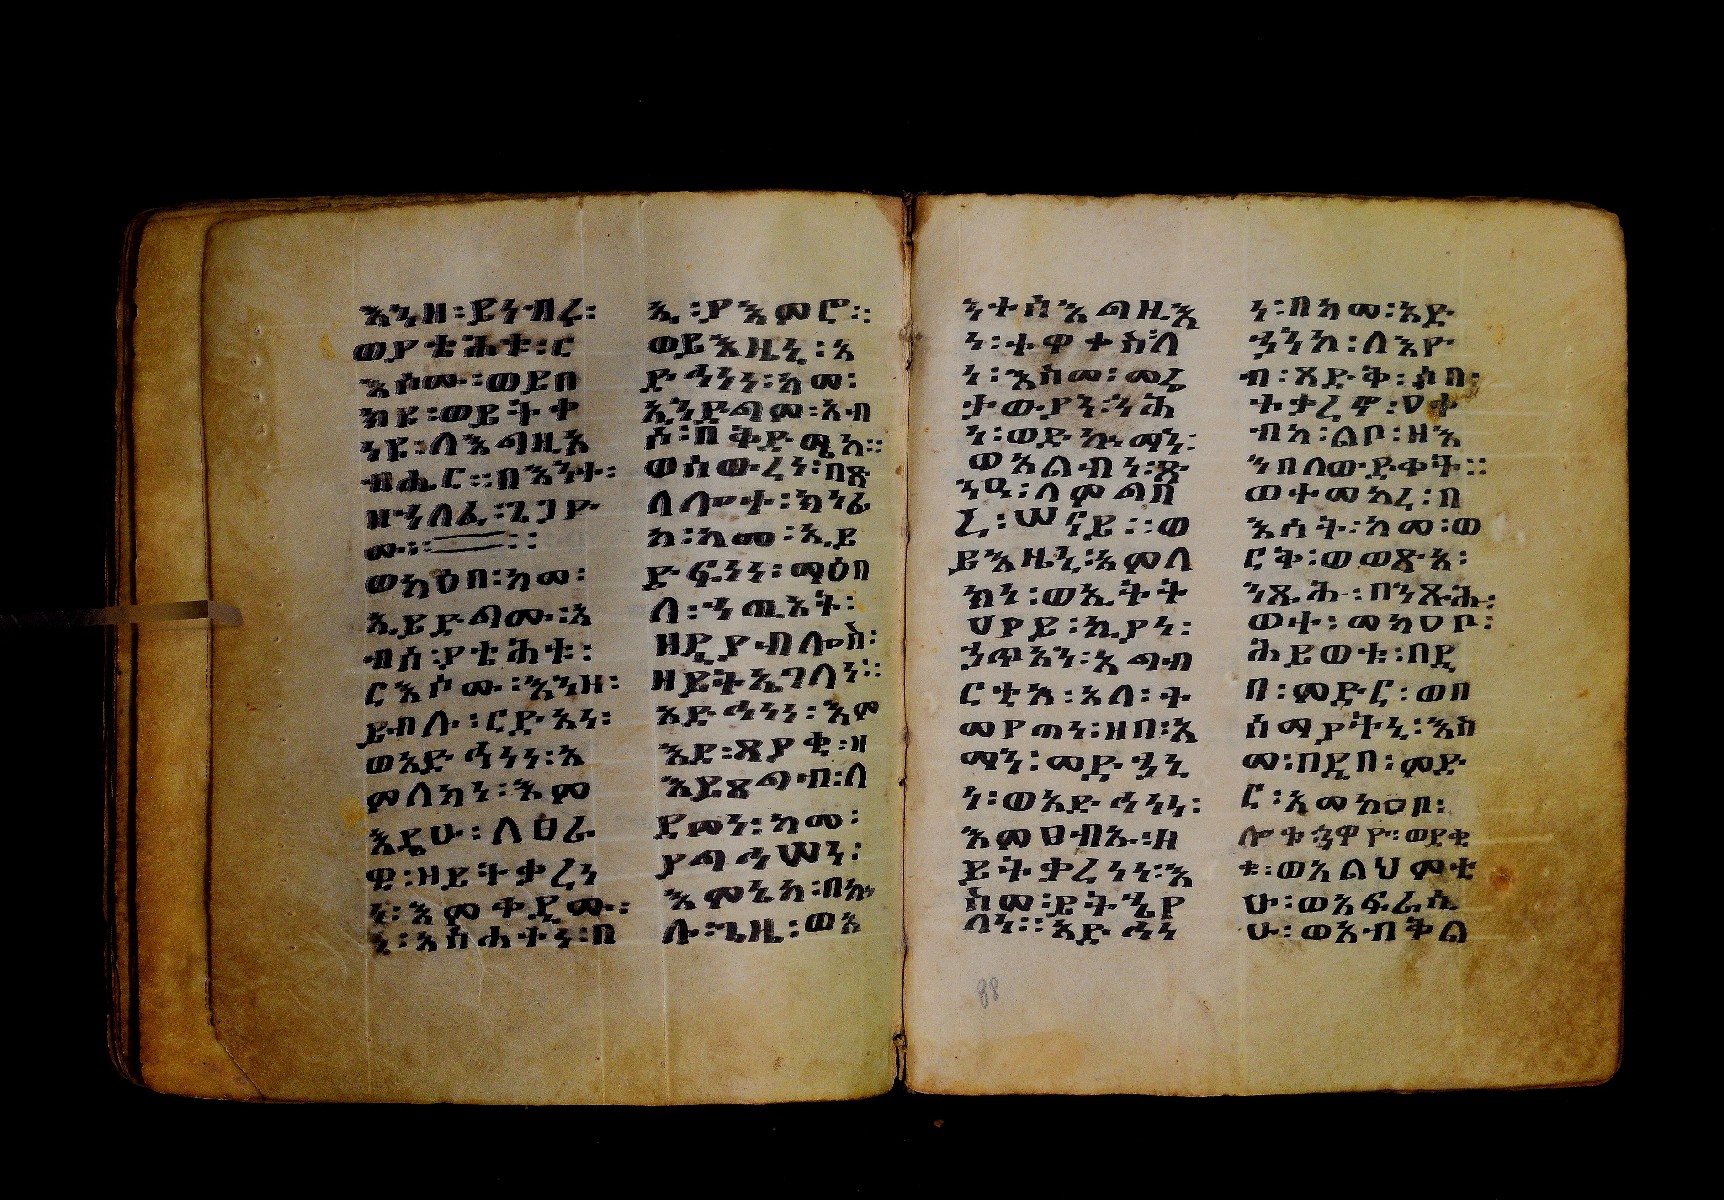 እንዘ፡ይነብር፡
ወያቴሕቱ፡ር
እሶሙ፡ወይበ
ክዩ፡ወይትቀ
ነዩ፡ለእግዚአ
ብሔር፡፡በእንተ፡
ዘኀለፈ፡ጌጋዮ
ሙ፡፡
ወከዕበ፡ከመ፡
ኢይድግሙ፡አ
ብሰ፡ያቴሕቱ፡
ርእሶሙ፡እንዘ፡
ይብሉ፡ርድአነ፡
ወአድኅነነ፡አ
ምላክነ፡እም
እዴሁ፡ለፀራ
ዊ፡ዘይትቃረነ
ነ፡እምቀዲሙ፡
ነ፡አስሐተነ፡በ
ኢ፡ያእምሮ፡፡
ወይእዜኒ፡አ
ድኅነነ፡ከመ፡
ኢንድግም፡አብ
ሶ፡በቅድሜከ፡፡
ወሰውረነ፡በጽ
ላሎተ፡ክነፊ
ከ፡ከመ፡ኢይ
ድፍነነ፡ማዕበ
ለ፡ኀጢአት፡
ዘዲያብሎስ፡
ዘይትኤገለነ፡፡
አድኅነነ፡እም
እደ፡ጸያቂ፡ዘ
እይጼግብ፡ለ
ደመነ፡ከመ፡
ያግኅሠነ፡
እምኔከ፡በኵ
ሉ፡ጊዜ፡ወአ
ንተሰ፡እግዚእ
ነ፡ተዋቀስ፡ለ
ነ፡እስመ፡መሬ
ታውያን፡ንሕ
ነ፡ወድኩማን፡
ወአልብነ፡ጽ
ንዕ፡ለምግባ
ረ፡ሠናይ፡፡ወ
ይእዜኒ፡አምላ
ክነ፡ወኢትት
ሀየይ፡ኢያነ፡
ኃጥአን፡አግብ
ርቲከ፡አላ፡ት
መየጠነ፡ዘበ፡አ
ማን፡መድኀኒ
ነ፡ወአድኅነነ፡
እምፀብኡ፡ዘ
ይትቃረነነ፡እ
ስመ፡ይትኄየ
ለነ፡፡አድኅነ
ነ፡በከመ፡አድ
ኀንከ፡ለእዮ
ብ፡ጻድቅ፡ሶበ፡
ተቃረኖ፡ሀቀ
ብከ፡ልቦ፡ዘእ
ንበለውድቀት፡፡
ወተመከረ፡በ
እሳት፡ከመ፡ወ
ርቅ፡ወወጽአ፡
ንጹሕ፡በንጽሕ፡
ወተ፡መከሀቦ፡
ሕይወቱ፡በዲ
በ፡ምድር፡ወበ
ሰማያትኒ፡እስ
መ፡በዲበ፡ምድ
ር፡አመከዐበ፡
ሎቱ፡ኃዋዮ፡ወደቂ
ቁ፡ወአልህምቲ
ሁ፡ወአፍራሲ
ሁ፡ወአብቅል
88